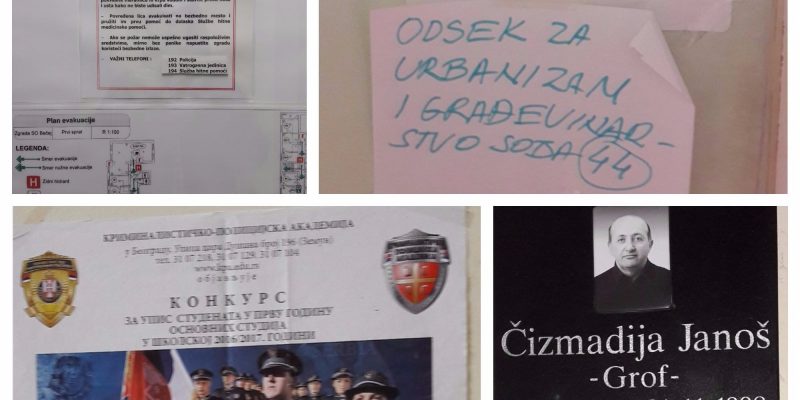 i usta kako ne biste udisali dim.
- Povređena lica evakuisati na bezbedno mesto i
pružiti im prvu pomoć do dolaska Službe hitne
medicinske pomoći.
- Ako se požar nemože uspešno ugasiti raspoloživim
sredstvima, mirno bez panike napustite zgradu
koristeći bezbedne izlaze.
- VAŽNI TELEFONI : 192 Policija
193 Vatrogasna jedinica
194 Služba hitne pomoći
Plan evakuacije
Zgrada SO Bečej Prvi sprat R 1:100
LEGENDA:
Smer evakuacije
Smer nužne evakuacije
H Zidni hidrant
ODSEK ZA
URBANIZAM
I GRAĐEVINAR-
STVO SOBA 44
КРИМИНАЛИСТИЧКО-ПОЛИЦИЈСКА АКАДЕМИЈА
у Београду, Улица цара Душана број 196 (Земун)
тел. 31 07 218, 31 07 129, 31 07 104
www.kpa.edu.rs
о б ј а в љ у ј е
КОНКУРС
ЗА УПИС СТУДЕНАТА У ПРВУ ГОДИНУ
ОСНОВНИХ СТУДИЈА
У ШКОЛСКОЈ 2016/2017. ГОДИНИ
Čizmadija Janoš
-Grof-